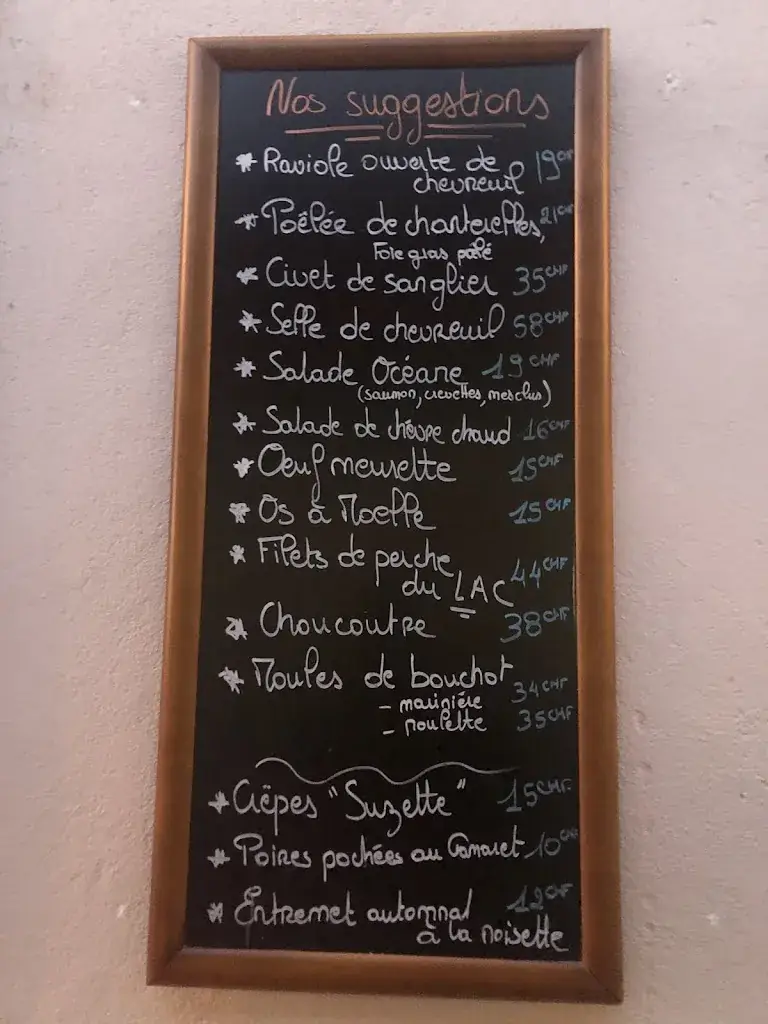 Nos suggestions
* Raviole ouverte de 19CHF
chevreuil
* Poêlée de chanterelles, 21CHF
Foie gras poêlé
* Civet de sanglier 35CHF
* Selle de chevreuil 58CHF
* Salade Océane 19CHF
(saumon, crevettes, mesclus)
* Salade de chèvre chaud 16CHF
* Oeuf meurette 15CHF
* Os à Moelle 15CHF
* Filets de perche
du LAC 44CHF
* Choucoutre 38CHF
* Moules de bouchot
- marinière 34CHF
- poulette 35CHF
* Crêpes "Suzette" 15CHF
* Poires pochées au Gamaret 10CHF
* Entremet automnal 12CHF
à la noisette